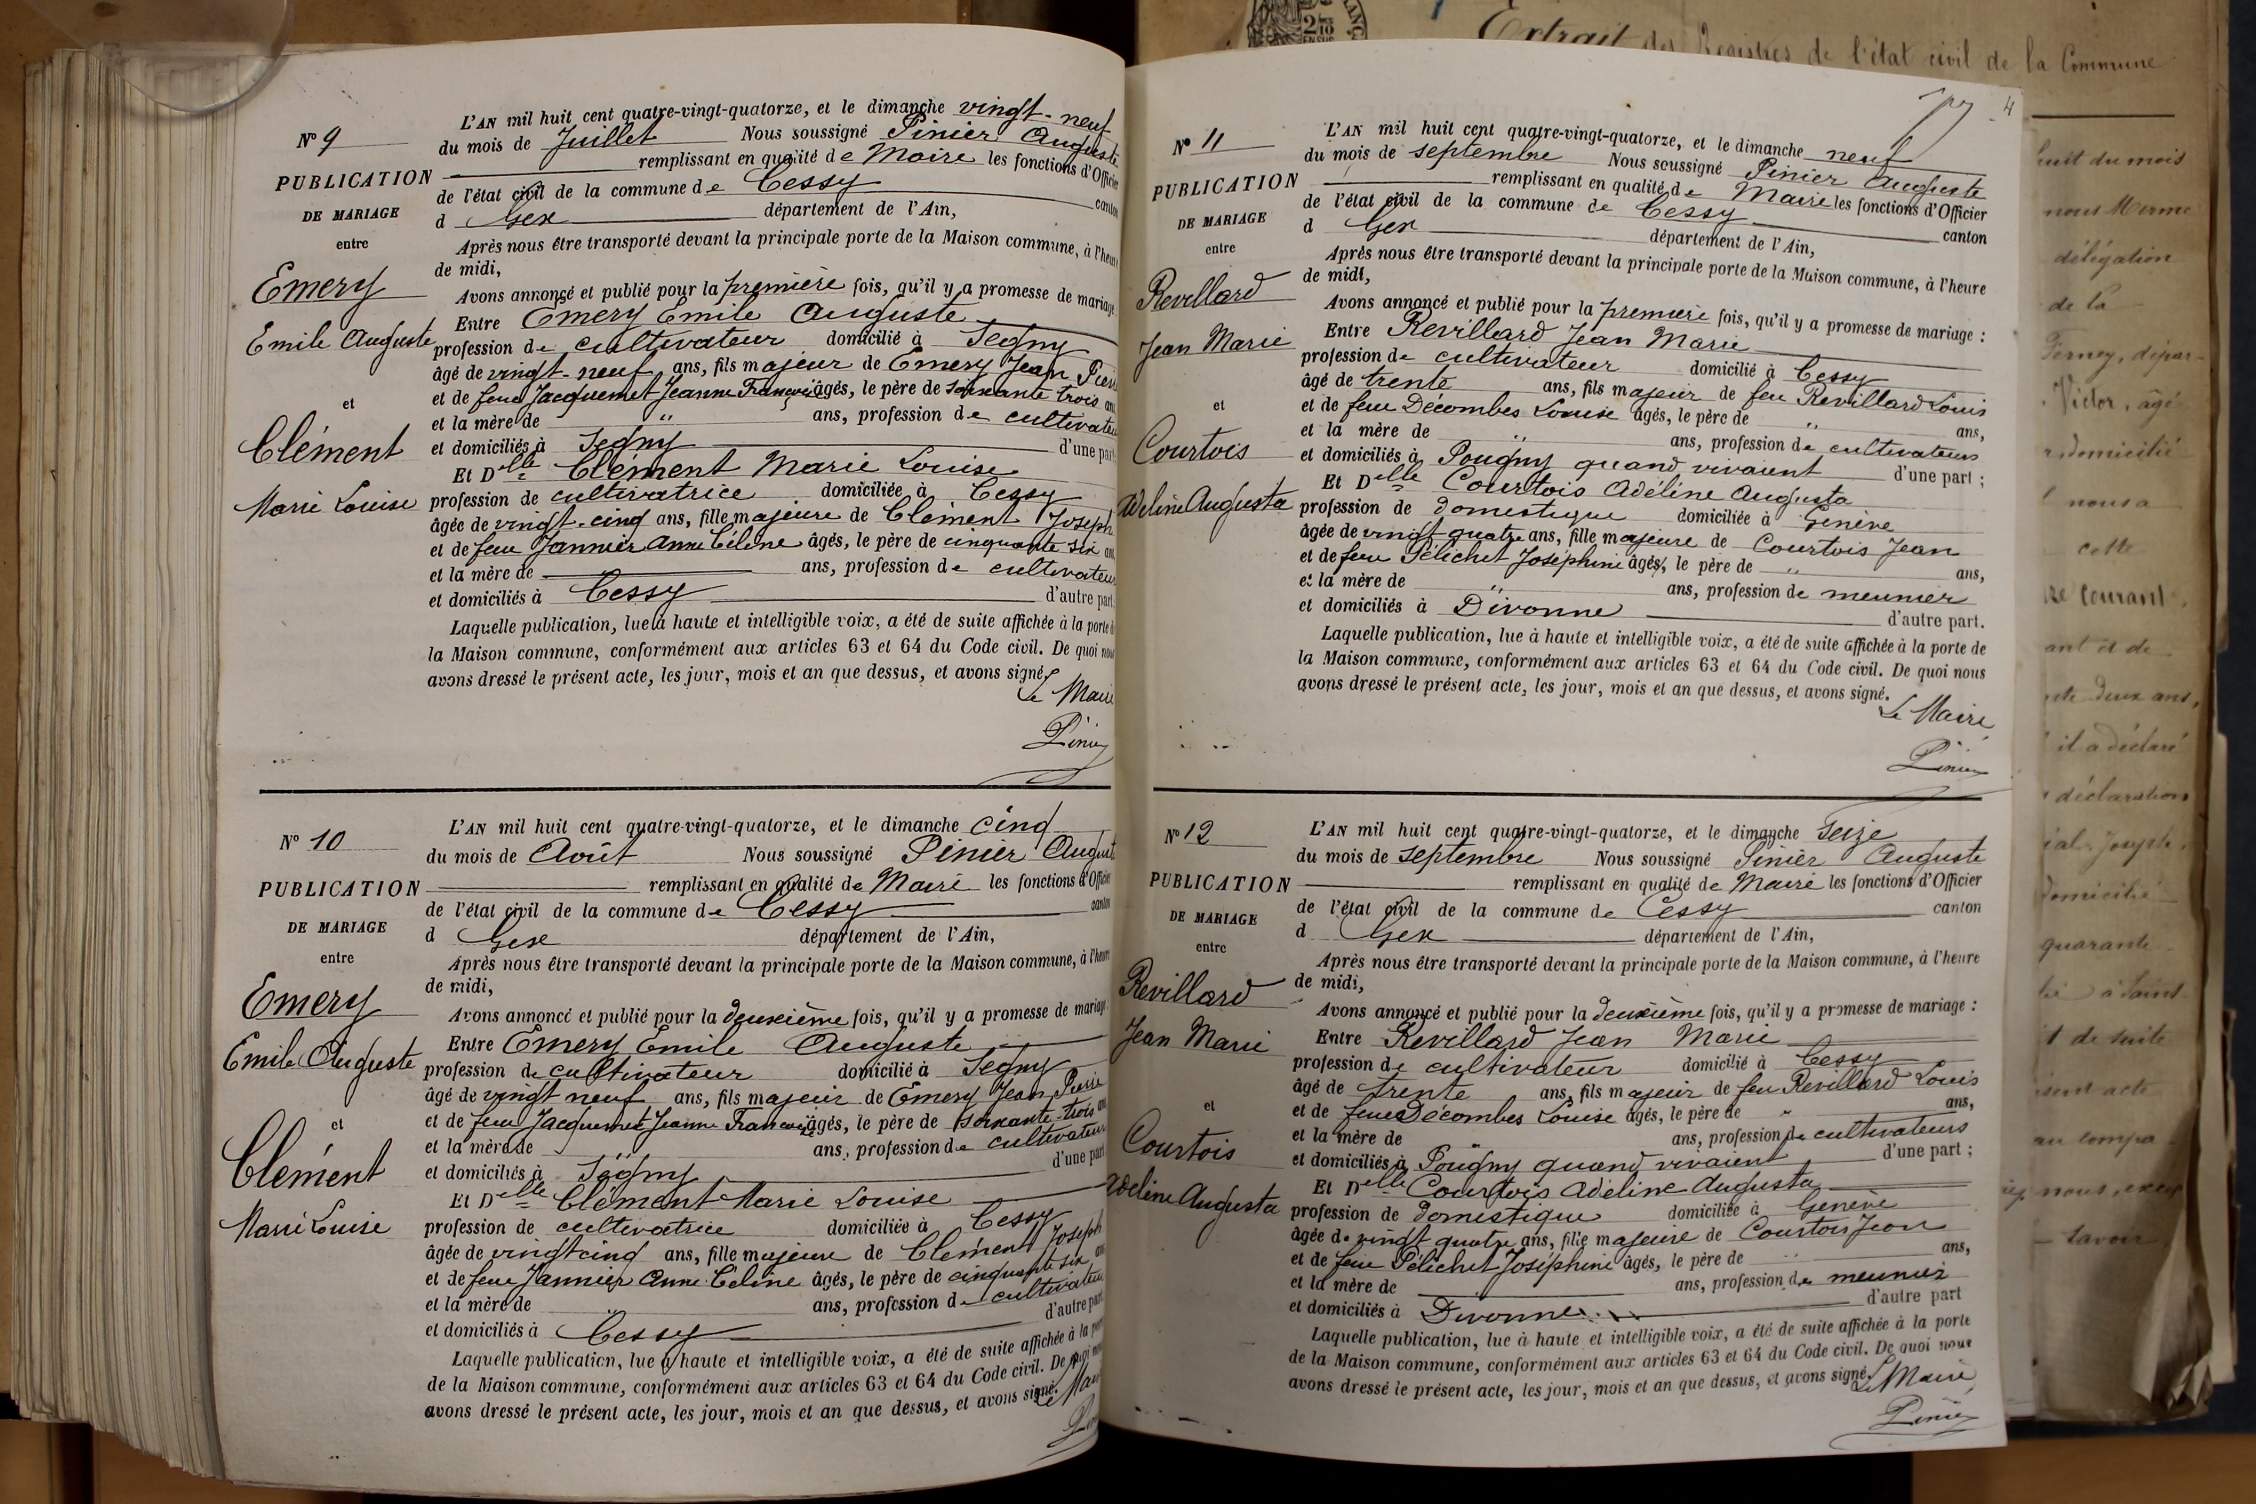 N° 9
PUBLICATION
DE MARIAGE
entre
Emery
Emile Auguste
et
Clément
Marie Louise
L'AN mil huit cent quatre-vingt-quatorze, et le dimanche vingt-neuf
du mois de Juillet Nous soussigné Pinier Auguste
remplissant en qualité de Maire les fonctions d'Officier
de l'état civil de la commune de Cessy canton
d Gex département de l'Ain,
Après nous être transporté devant la principale porte de la Maison commune, à l'heure
de midi,
Avons annoncé et publié pour la première fois, qu'il y a promesse de mariage
Entre Emery Emile Auguste
profession de cultivateur domicilié à Segny
âgé de vingt-neuf ans, fils majeur de Emery Jean Pierre
et de feue Jacquemet Jeanne Françoise âgés, le père de soixante trois ans
et la mère de " ans, profession de cultivateur
et domiciliés à Segny d'une part
Et Delle Clément Marie Louise
profession de cultivatrice domiciliée à Cessy
âgée de vingt-cinq ans, fille majeure de Clément Joseph
et de feue Jannier Anne Céline âgés, le père de cinquante six ans
et la mère de ans, profession de cultivateur
et domiciliés à Cessy d'autre part.
Laquelle publication, lue à haute et intelligible voix, a été de suite affichée à la porte de
la Maison commune, conformément aux articles 63 et 64 du Code civil. De quoi nous
avons dressé le présent acte, les jour, mois et an que dessus, et avons signé.
Le Maire
Pinier
N° 10
PUBLICATION
DE MARIAGE
entre
Emery
Emile Auguste
et
Clément
Marie Louise
L'AN mil huit cent quatre-vingt-quatorze, et le dimanche cinq
du mois de Août Nous soussigné Pinier Auguste
remplissant en qualité de Maire les fonctions d'Officier
de l'état civil de la commune de Cessy canton
d Gex département de l'Ain,
Après nous être transporté devant la principale porte de la Maison commune, à l'heure
de midi,
Avons annoncé et publié pour la deuxième fois, qu'il y a promesse de mariage
Entre Emery Emile Auguste
profession de cultivateur domicilié à Segny
âgé de vingt neuf ans, fils majeur de Emery Jean Pierre
et de feue Jacquemet Jeanne Françoise âgés, le père de soixante-trois ans
et la mère de ans, profession de cultivateur
et domiciliés à Segny d'une part
Et Delle Clément Marie Louise
profession de cultivatrice domiciliée à Cessy
âgée de vingt cinq ans, fille majeure de Clément Joseph
et de feue Jannier Anne Céline âgés, le père de cinquante six ans
et la mère de ans, profession de cultivateur
et domiciliés à Cessy d'autre part
Laquelle publication, lue à haute et intelligible voix, a été de suite affichée à la porte
de la Maison commune, conformément aux articles 63 et 64 du Code civil. De quoi nous
avons dressé le présent acte, les jour, mois et an que dessus, et avons signé.
Le Maire
4
N° 11
PUBLICATION
DE MARIAGE
entre
Revillard
Jean Marie
et
Courtois
Adeline Augusta
L'AN mil huit cent quatre-vingt-quatorze, et le dimanche neuf
du mois de septembre Nous soussigné Pinier Auguste
remplissant en qualité de Maire les fonctions d'Officier
de l'état civil de la commune de Cessy canton
d Gex département de l'Ain,
Après nous être transporté devant la principale porte de la Maison commune, à l'heure
de midi,
Avons annoncé et publié pour la première fois, qu'il y a promesse de mariage :
Entre Revillard Jean Marie
profession de cultivateur domicilié à Cessy
âgé de trente ans, fils majeur de feu Revillard Louis
et de feue Décombes Louise âgés, le père de " ans,
et la mère de " ans, profession de cultivateurs
et domiciliés à Pougny quand vivaient d'une part ;
Et Delle Courtois Adéline Augusta
profession de domestique domiciliée à Genève
âgée de vingt quatre ans, fille majeure de Courtois Jean
et de feue Pélichet Joséphine âgés, le père de " ans,
et la mère de " ans, profession de meunier
et domiciliés à Divonne d'autre part.
Laquelle publication, lue à haute et intelligible voix, a été de suite affichée à la porte de
la Maison commune, conformément aux articles 63 et 64 du Code civil. De quoi nous
avons dressé le présent acte, les jour, mois et an que dessus, et avons signé.
Le Maire
Pinier
N° 12
PUBLICATION
DE MARIAGE
entre
Revillard
Jean Marie
et
Courtois
Adeline Augusta
L'AN mil huit cent quatre-vingt-quatorze, et le dimanche seize
du mois de septembre Nous soussigné Pinier Auguste
remplissant en qualité de Maire les fonctions d'Officier
de l'état civil de la commune de Cessy canton
d Gex département de l'Ain,
Après nous être transporté devant la principale porte de la Maison commune, à l'heure
de midi,
Avons annoncé et publié pour la deuxième fois, qu'il y a promesse de mariage :
Entre Revillard Jean Marie
profession de cultivateur domicilié à Cessy
âgé de trente ans, fils majeur de feu Revillard Louis
et de feue Décombes Louise âgés, le père de " ans,
et la mère de " ans, profession de cultivateurs
et domiciliés à Pougny quand vivaient d'une part ;
Et Delle Courtois Adéline Augusta
profession de domestique domiciliée à Genève
âgée de vingt quatre ans, fille majeure de Courtois Jean
et de feue Pélichet Joséphine âgés, le père de " ans,
et la mère de ans, profession de meunier
et domiciliés à Divonne d'autre part
Laquelle publication, lue à haute et intelligible voix, a été de suite affichée à la porte
de la Maison commune, conformément aux articles 63 et 64 du Code civil. De quoi nous
avons dressé le présent acte, les jour, mois et an que dessus, et avons signé.
Le Maire
Pinier
Extrait des Registres de l'état civil de la Commune
huit du mois
nous Mermet
délégation
de la
Ferney, dépar-
Victor, âgé
domicilié
nous a
cette
courant
ant et de
deux ans,
il a déclaré
déclaration
Joseph,
domicilié
quarante
à Saint
de suite
acte
au compa
nous, excep
savoir